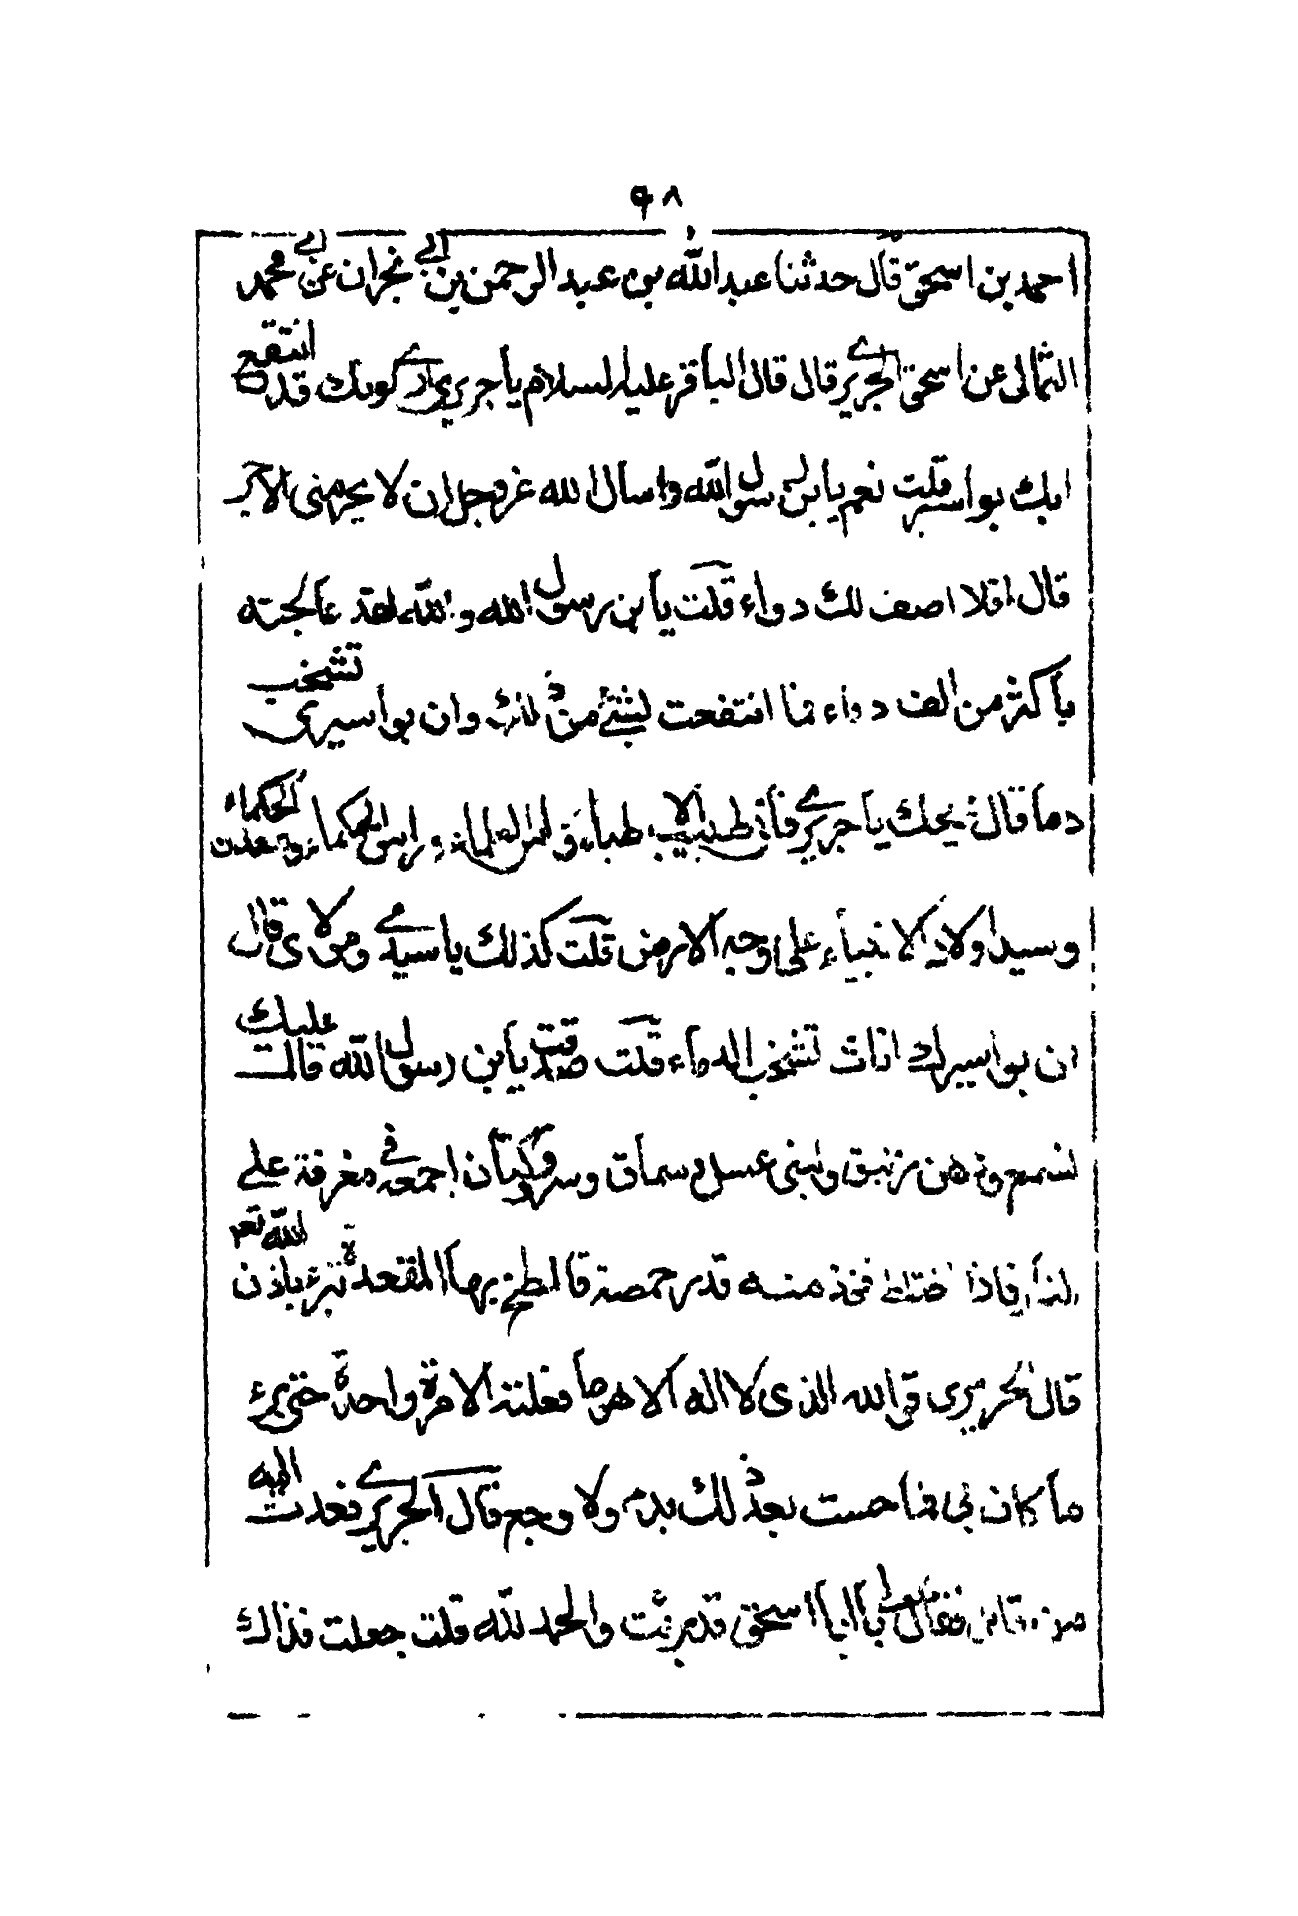 ٩٨
احمد بن اسحق قال حدثنا عبد الله بن عبد الرحمن بن ابي نجران عن ابي محمد
الثمالي عن اسحق الجريري قال قال الباقر عليه السلام يا جريري ارى لونك قد انتقع
ابك بواسير قلت نعم يا بن رسول الله واسال الله عز وجل ان لا يحرمني الاجر
قال افلا اصف لك دواء قلت يا بن رسول الله والله لقد عالجته
باكثر من الف دواء فما انتفعت بشئ من ذلك وان بواسيري تشخب
دما قال ويحك يا جريري فاني طبيب الاطباء وراس العلماء وراس الحكماء ومعدن
وسيد اولاد الانبياء على وجه الارض قلت كذلك يا سيدي ومولاى قال
ان بواسيرك اناث تشخب الدماء قلت صدقت يا بن رسول الله قال عليك
بشمع ودهن زنبق ولبنى عسل وسماق وسرو كتان اجمعه في مغرفة على
النار فاذا اختلط فخذ منه قدر حمصة فالطخ بها المقعدة تبرء باذن الله تعم
قال الجريري فو الله الذى لا اله الا هو ما فعلته الا مرة واحدة حتى برء
ما كان بي فما حسست بعد ذلك بدم ولا وجع قال الجريري فعدت اليه
من قابل فقال لي يا ابا اسحق قد برئت والحمد لله قلت جعلت فداك